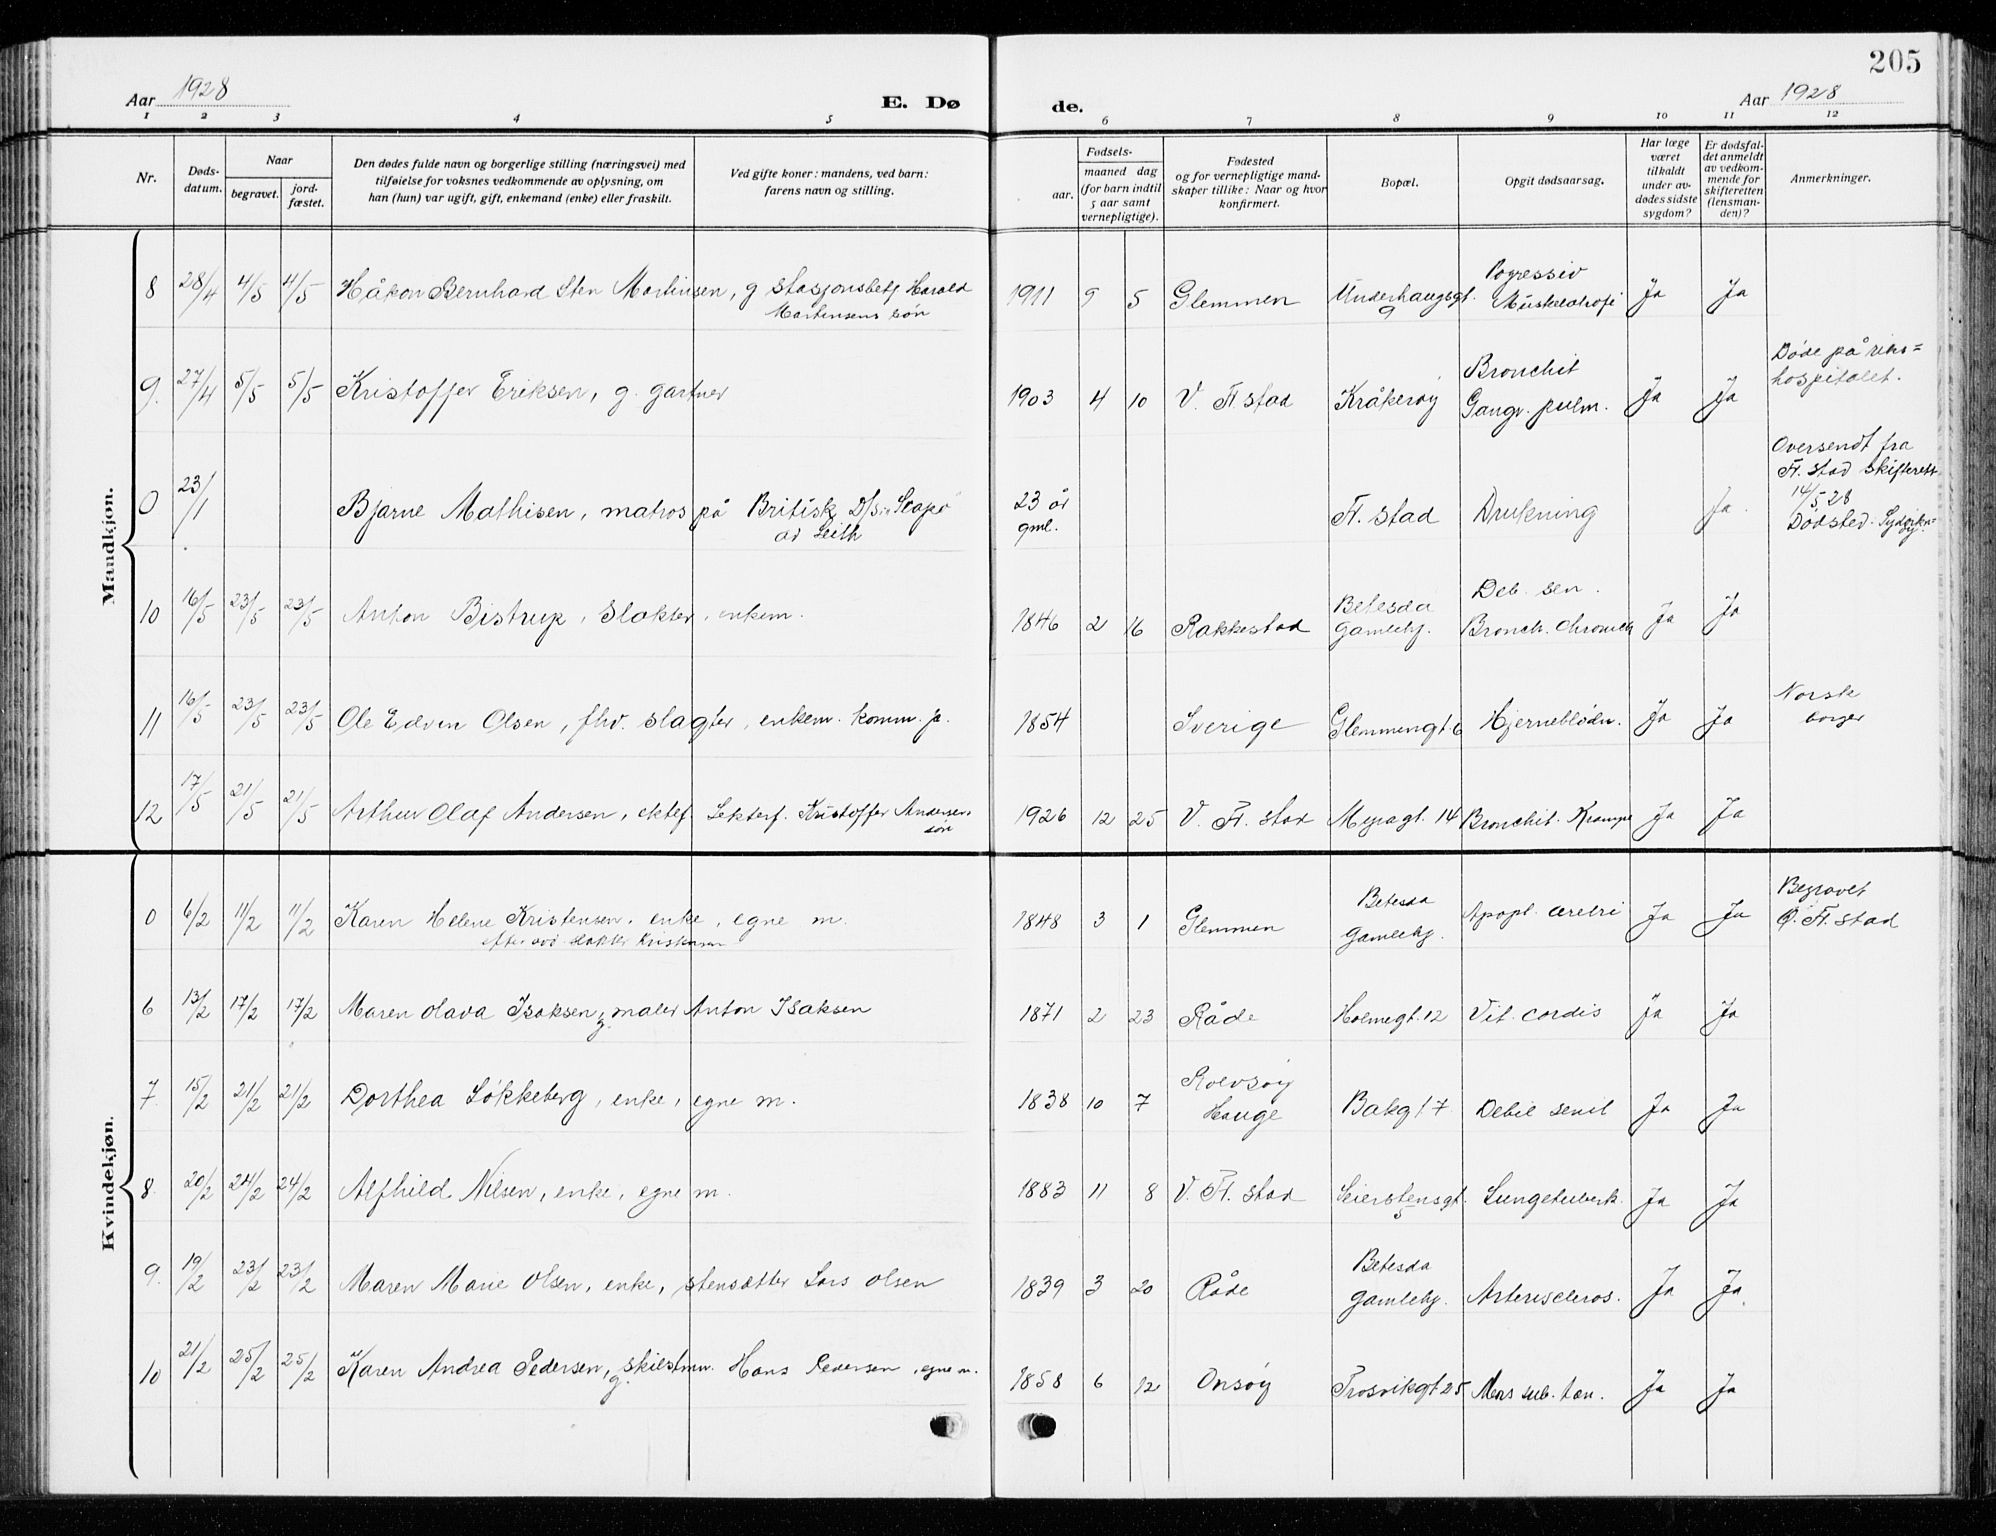 205
Aar 1928 E. Døde. Aar 1928
1 2 3 4 5 6 7 8 9 10 11 12
Nr.
Dødsdatum.
Naar
begravet.
jordfæstet.
Den dødes fulde navn og borgerlige stilling (næringsvei) med
tilføielse for voksnes vedkommende av oplysning, om
han (hun) var ugift, gift, enkemand (enke) eller fraskilt.
Ved gifte koner: mandens, ved barn:
farens navn og stilling.
Fødsels-
aar.
maaned dag
(for barn indtil
5 aar samt
vernepligtige).
Fødested
og for vernepligtige mand-
skaper tillike: Naar og hvor
konfirmert.
Bopæl.
Opgit dødsaarsag.
Har læge
været
tilkaldt
under av-
dødes sidste
sygdom?
Er dødsfal-
det anmeldt
av vedkom-
mende for
skifteretten
(lensman-
den)?
Anmerkninger.
Mandkjøn.
8 28/4 4/5 4/5 Håkon Bernhard Sten Martinsen, g stasjonsbetj Harald Martinsens søn 1911 9 5 Glemmen Underhaugsgt. 9 Progressiv Muskelatrofi Ja Ja
9. 27/4 5/5 5/5 Kristoffer Eriksen, g. gartner 1903 4 10 V. Fr.stad Kråkerøy Bronchit Gangr. pulm. Ja Ja Døde på riks=hospitalet.
0 23/1 Bjarne Mathisen, matros på Britisk D/s av Leith 23 år gml. Fr. stad Drukning Ja Oversendt fra Fr. stad skifterett 14/5 28 Dødsted.
10 16/5 23/5 23/5 Anton Bistrup, slakter, enkem. 1846 2 16 Rakkestad Betesda Gamlehj. Deb. sen. Bronch. chronich Ja Ja
11 16/5 23/5 23/5 Ole Edvin Olsen, fhv. slagter, enkem. komm. p. 1854 Sverige Glemmengt 6 Hjerneblødn. Ja Ja Norsk borger
12 17/5 21/5 21/5 Arthur Olaf Andersen, ektef. Kristoffer Andersens søn 1926 12 25 V. Fr. stad Myragt. 14 Bronchit. Krampe Ja Ja
Kvindekjøn.
0 6/2 11/2 11/2 Karen Helene Kristensen, enke, egne m. efter avd slakter Kristensen 1848 3 1 Glemmen Betesda Gamlehj. Apopl. cerebri Ja Ja Begravet Ø. Fr. stad
6 13/2 17/2 17/2 Maren Olava Isaksen, g. maler Anton Isaksen 1871 2 23 Råde Holmegt. 12 Vit. cordis Ja Ja
7 15/2 21/2 21/2 Dorthea Løkkeberg, enke, egne m. 1838 10 7 Rolvsøy Hauge Bakgt 7 Debil senil Ja Ja
8. 20/2 24/2 24/2 Alfhild Nilsen, enke, egne m. 1883 11 8 V. Fr. stad Seierstensgt. 5 Lungetuberk. Ja Ja
9. 19/2 23/2 23/2 Maren Marie Olsen, enke, stensætter Lars Olsen 1839 3 20 Råde Betesda Gamlehj. Arterisceros. Ja Ja
10 21/2 25/2 25/2 Karen Andrea Pedersen, g. Hans Pedersen, egne m. 1858 6 12 Onsøy Trosvikgt 25 Mors sub. tan. Ja Ja